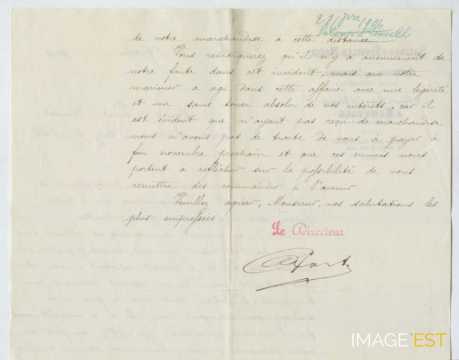 de notre marchandise à cette distance.
Vous remarquerez qu'il n'y a aucunement de
notre faute dans cet incident, mais que votre
marinier a agi dans cette affaire avec une légèreté
et un sans souci absolu de vos intérêts, car il
est évident que n'ayant pas reçu de marchandise
nous n'avons pas de traite de vous à payer à
fin novembre prochain et que ces ennuis nous
portent à réfléchir sur la possibilité de vous
remettre des commandes à l'avenir.
Veuillez agréer, Monsieur, nos salutations les
plus empressées.
Le Directeur
IMAGE'EST